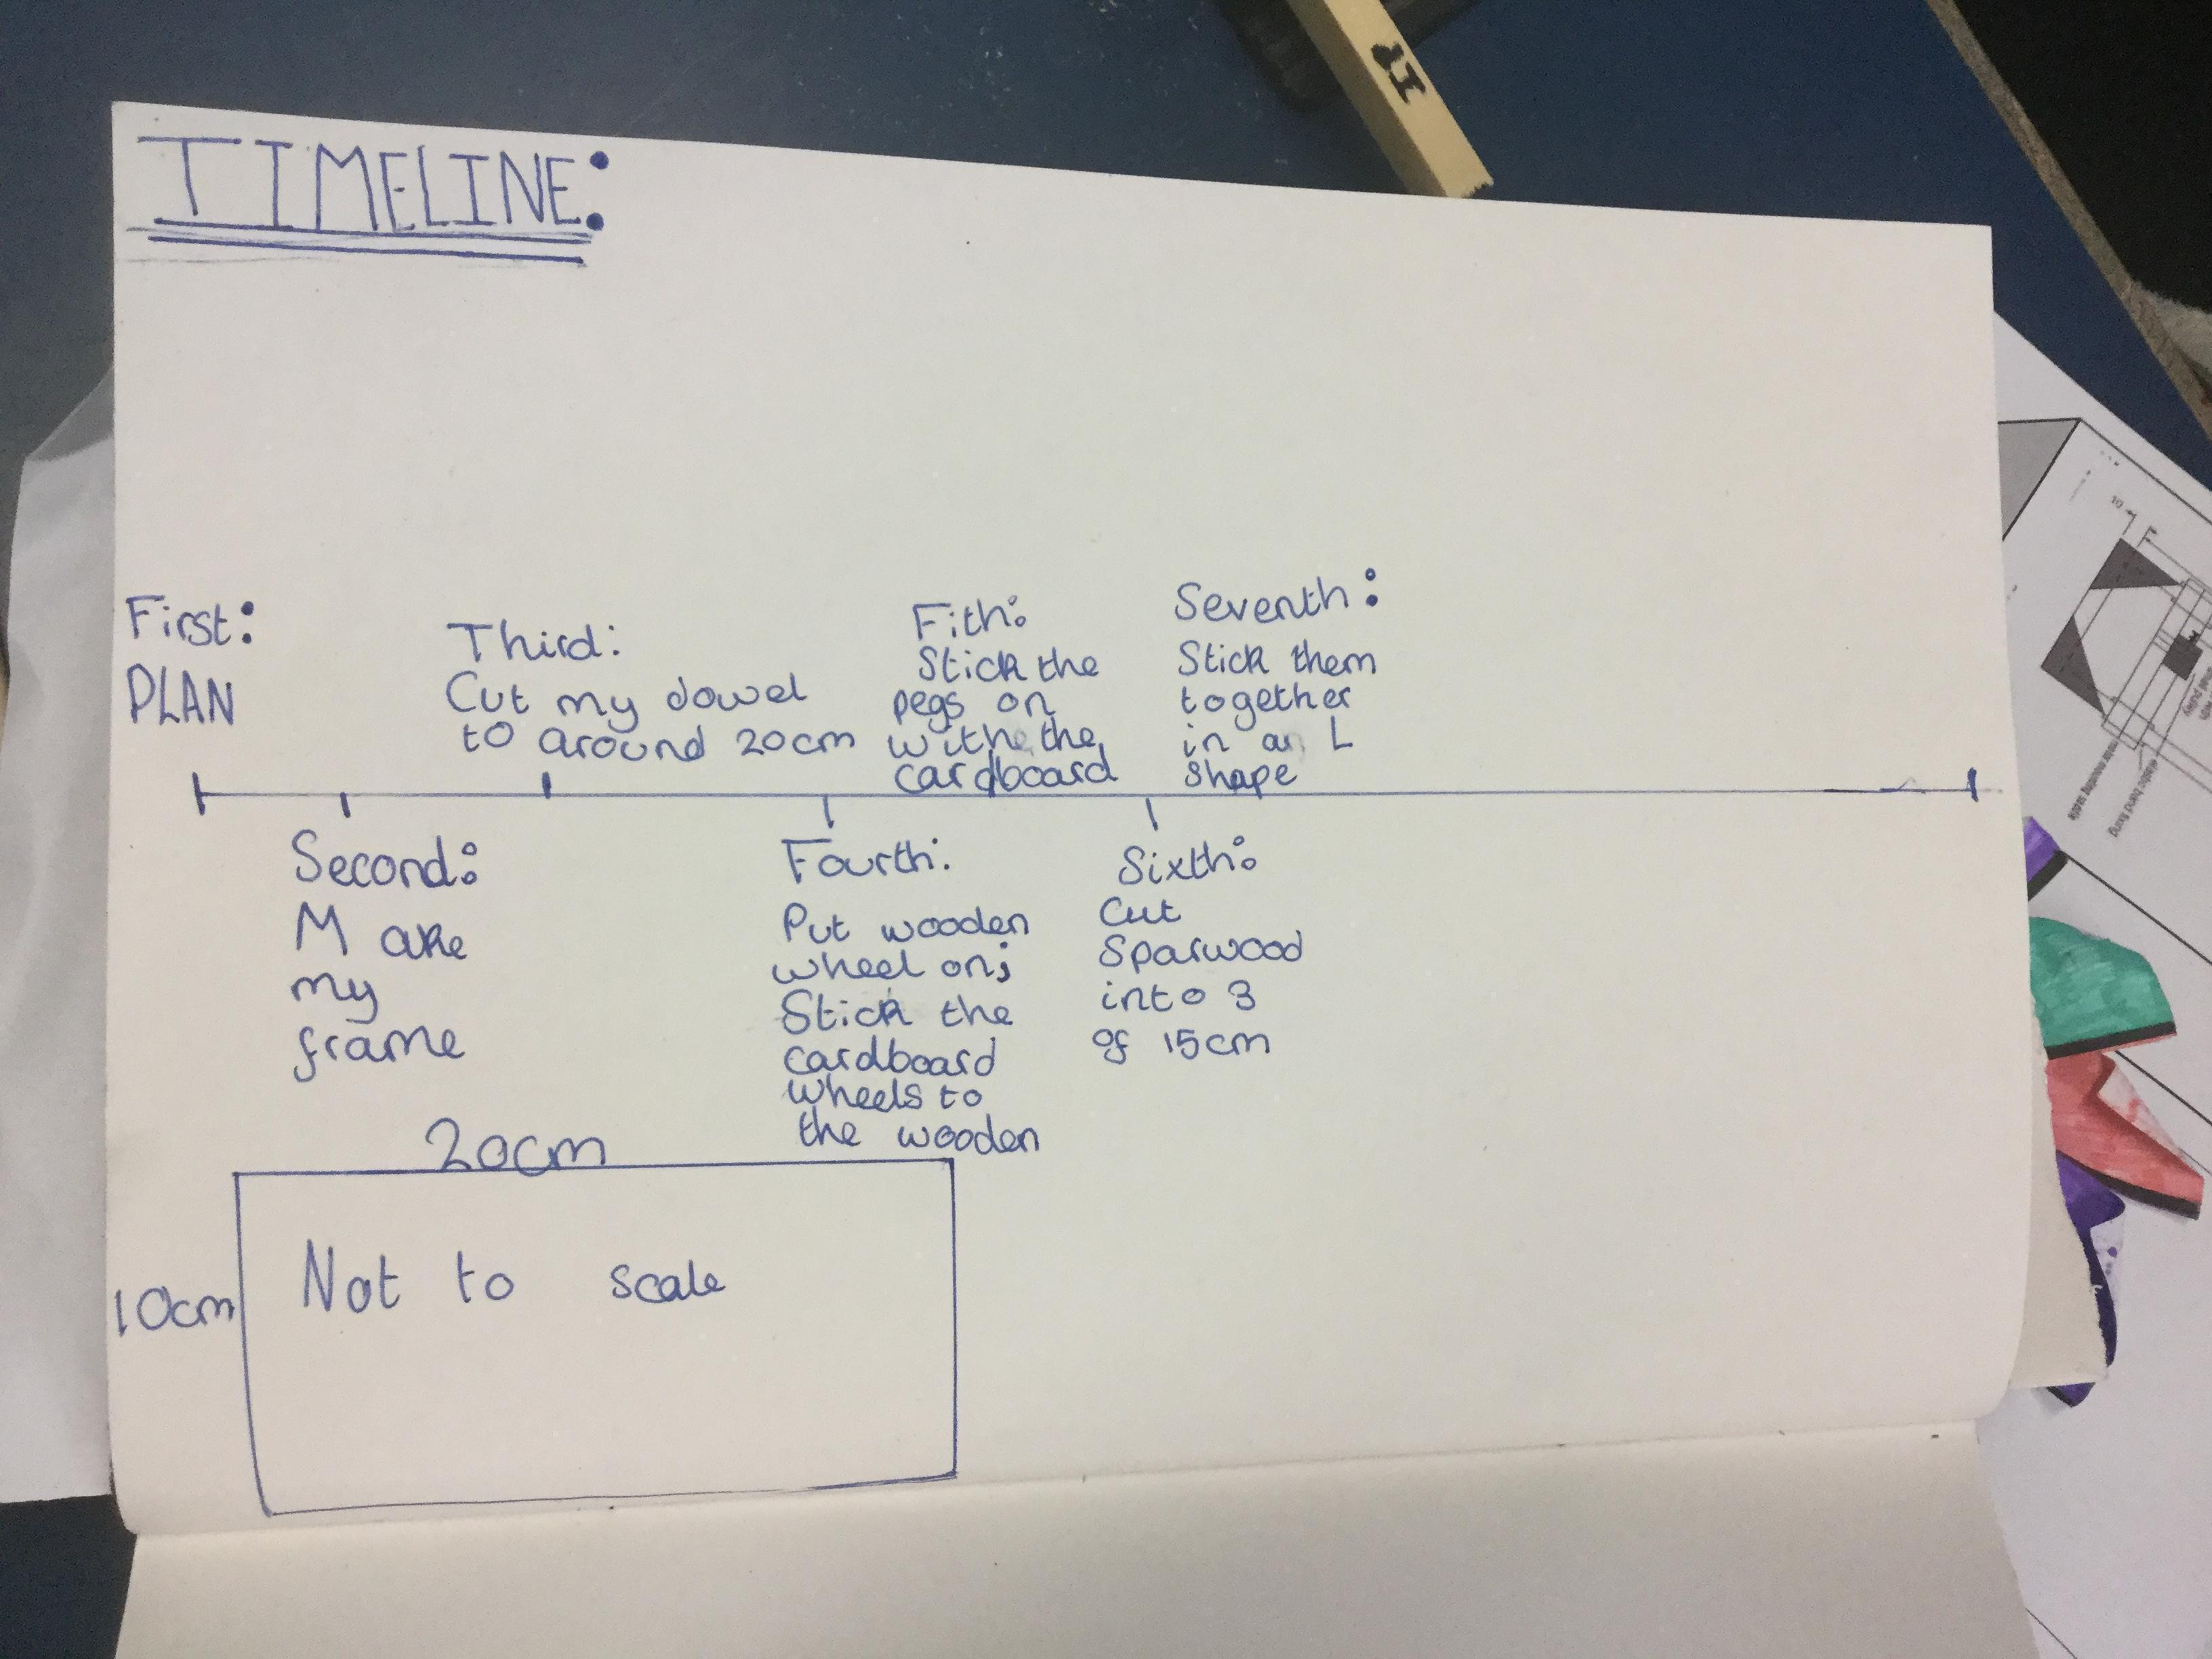 TIMELINE:
First:
PLAN
Second:
Make
my
frame
Third:
Cut my dowel
to around 20cm
Fourth:
Put wooden
wheel on;
Stick the
cardboard
wheels to
the wooden
Fith:
Stick the
pegs on
withe the
cardboard
Sixth:
Cut
Sparwood
into 3
of 15cm
Seventh:
Stick them
together
in an L
shape
20cm
10cm
Not to scale